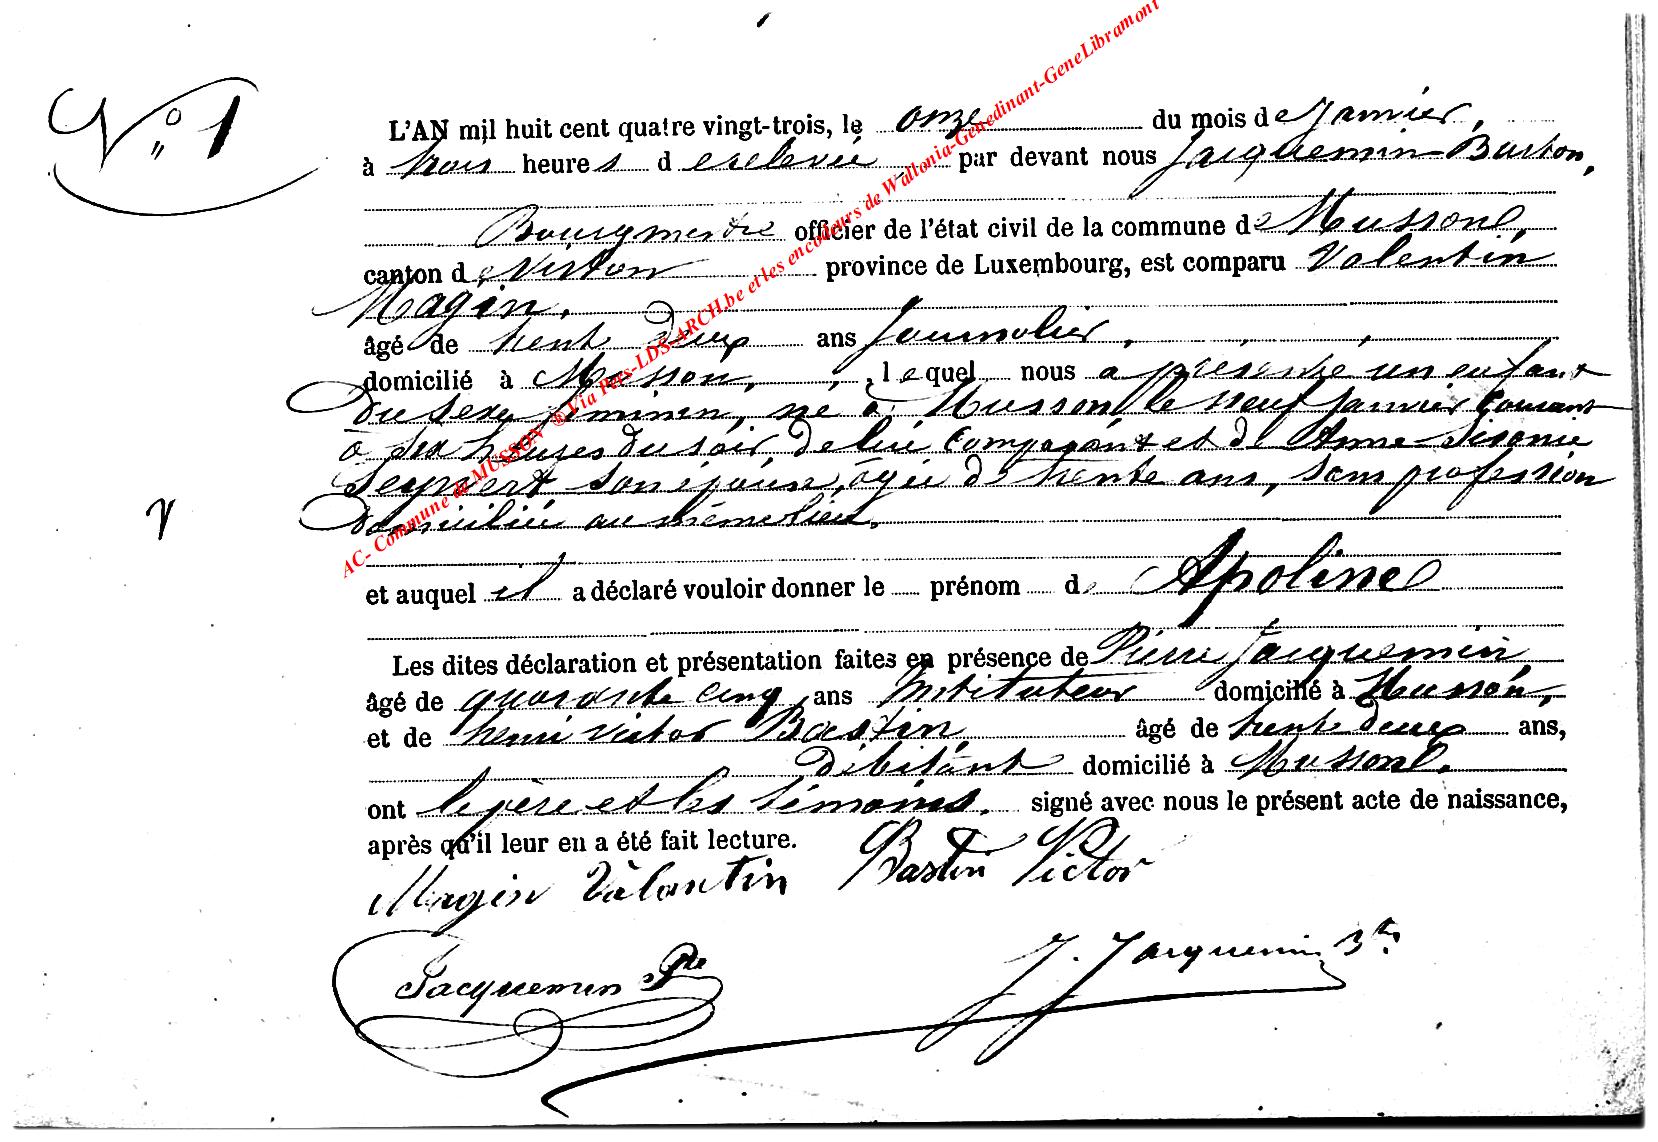 N° 1
L'AN mil huit cent quatre vingt-trois, le onze du mois de Janvier,
à trois heures de relevée, par devant nous Jacquemin Burton,
Bourgmestre officier de l'état civil de la commune de Musson,
canton de Virton province de Luxembourg, est comparu Valentin
Magin,
âgé de trente deux ans Journalier,
domicilié à Musson, lequel nous a présenté un enfant
du sexe féminin, né à Musson le neuf Janvier courant
à six heures du soir, de lui comparant et de Anne Sidonie
Seyvert son épouse, âgée de trente ans, sans profession
domiciliée au même lieu.
et auquel il a déclaré vouloir donner le prénom de Apoline
Les dites déclaration et présentation faites en présence de Pierre Jacquemin,
âgé de quarante cinq ans Instituteur domicilié à Musson,
et de henri victor Bastin, âgé de trente deux ans,
débitant domicilié à Musson.
ont le père et les témoins, signé avec nous le présent acte de naissance,
après qu'il leur en a été fait lecture.
Magin Valantin Bastin Victor
Jacquemin Pre J. Jacquemin Bton
AC- Commune de MUSSON ® Via Pers-LDS-ARCH.be et les encodeurs de Wallonia-Genedinant-GeneLibramont